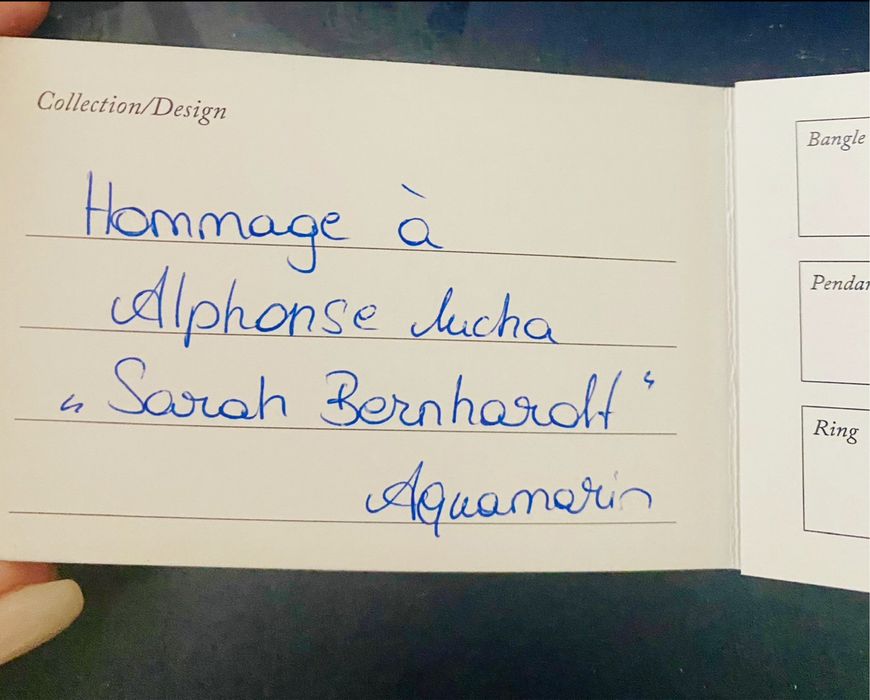 Collection/Design
Hommage à
Alphonse Mucha
„Sarah Bernhardt“
Aquamarin
Bangle
Pendan
Ring